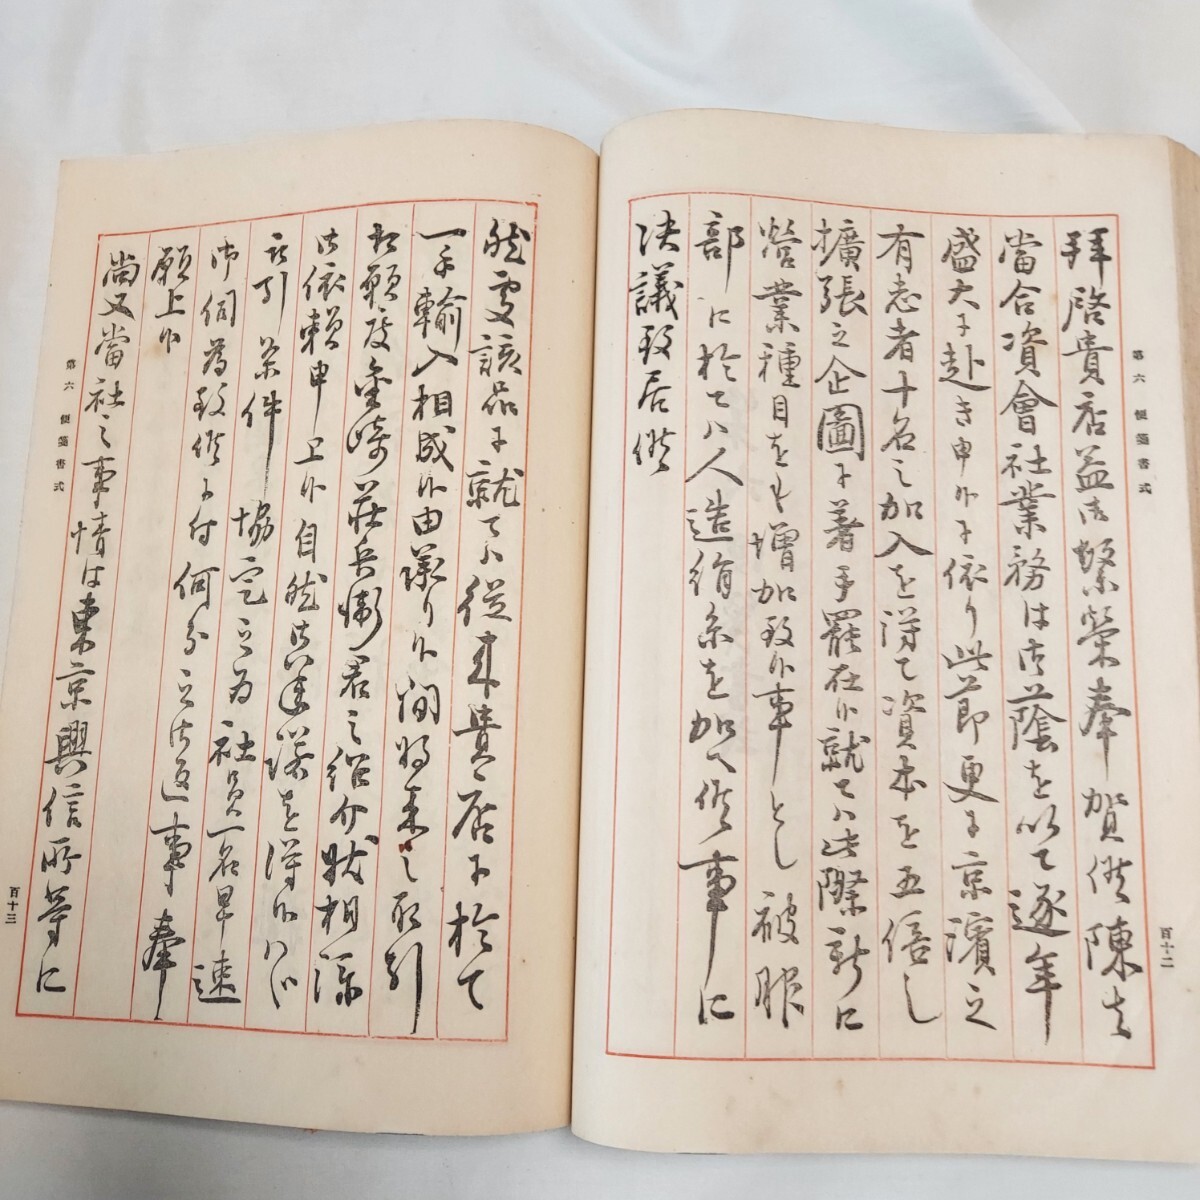 第六 便箋書式
百十二
拝啓貴店益御繁榮奉賀候陳者
當合資會社業務は御蔭を以て逐年
盛大に赴き申候に依り此節更に京濱之
有志者十名之加入を得て資本を五倍し
擴張之企圖に著手罷在候就ては此際新に
營業種目をも増加致候事とし被服
部に於ては人造絹糸を加へ候事に
決議致居候
然處該品に就ては從来貴店に於て
一手輸入相成候由承り候間将来之取引
相願度 崎莊兵衛君之紹介状相添
御依頼申上候自然御承諾を得候はゞ
取引条件協定之為社員一名早速
御伺為致候に付何分之御返事奉
願上候
尚又當社之事情は東京興信所等に
第六 便箋書式
百十三